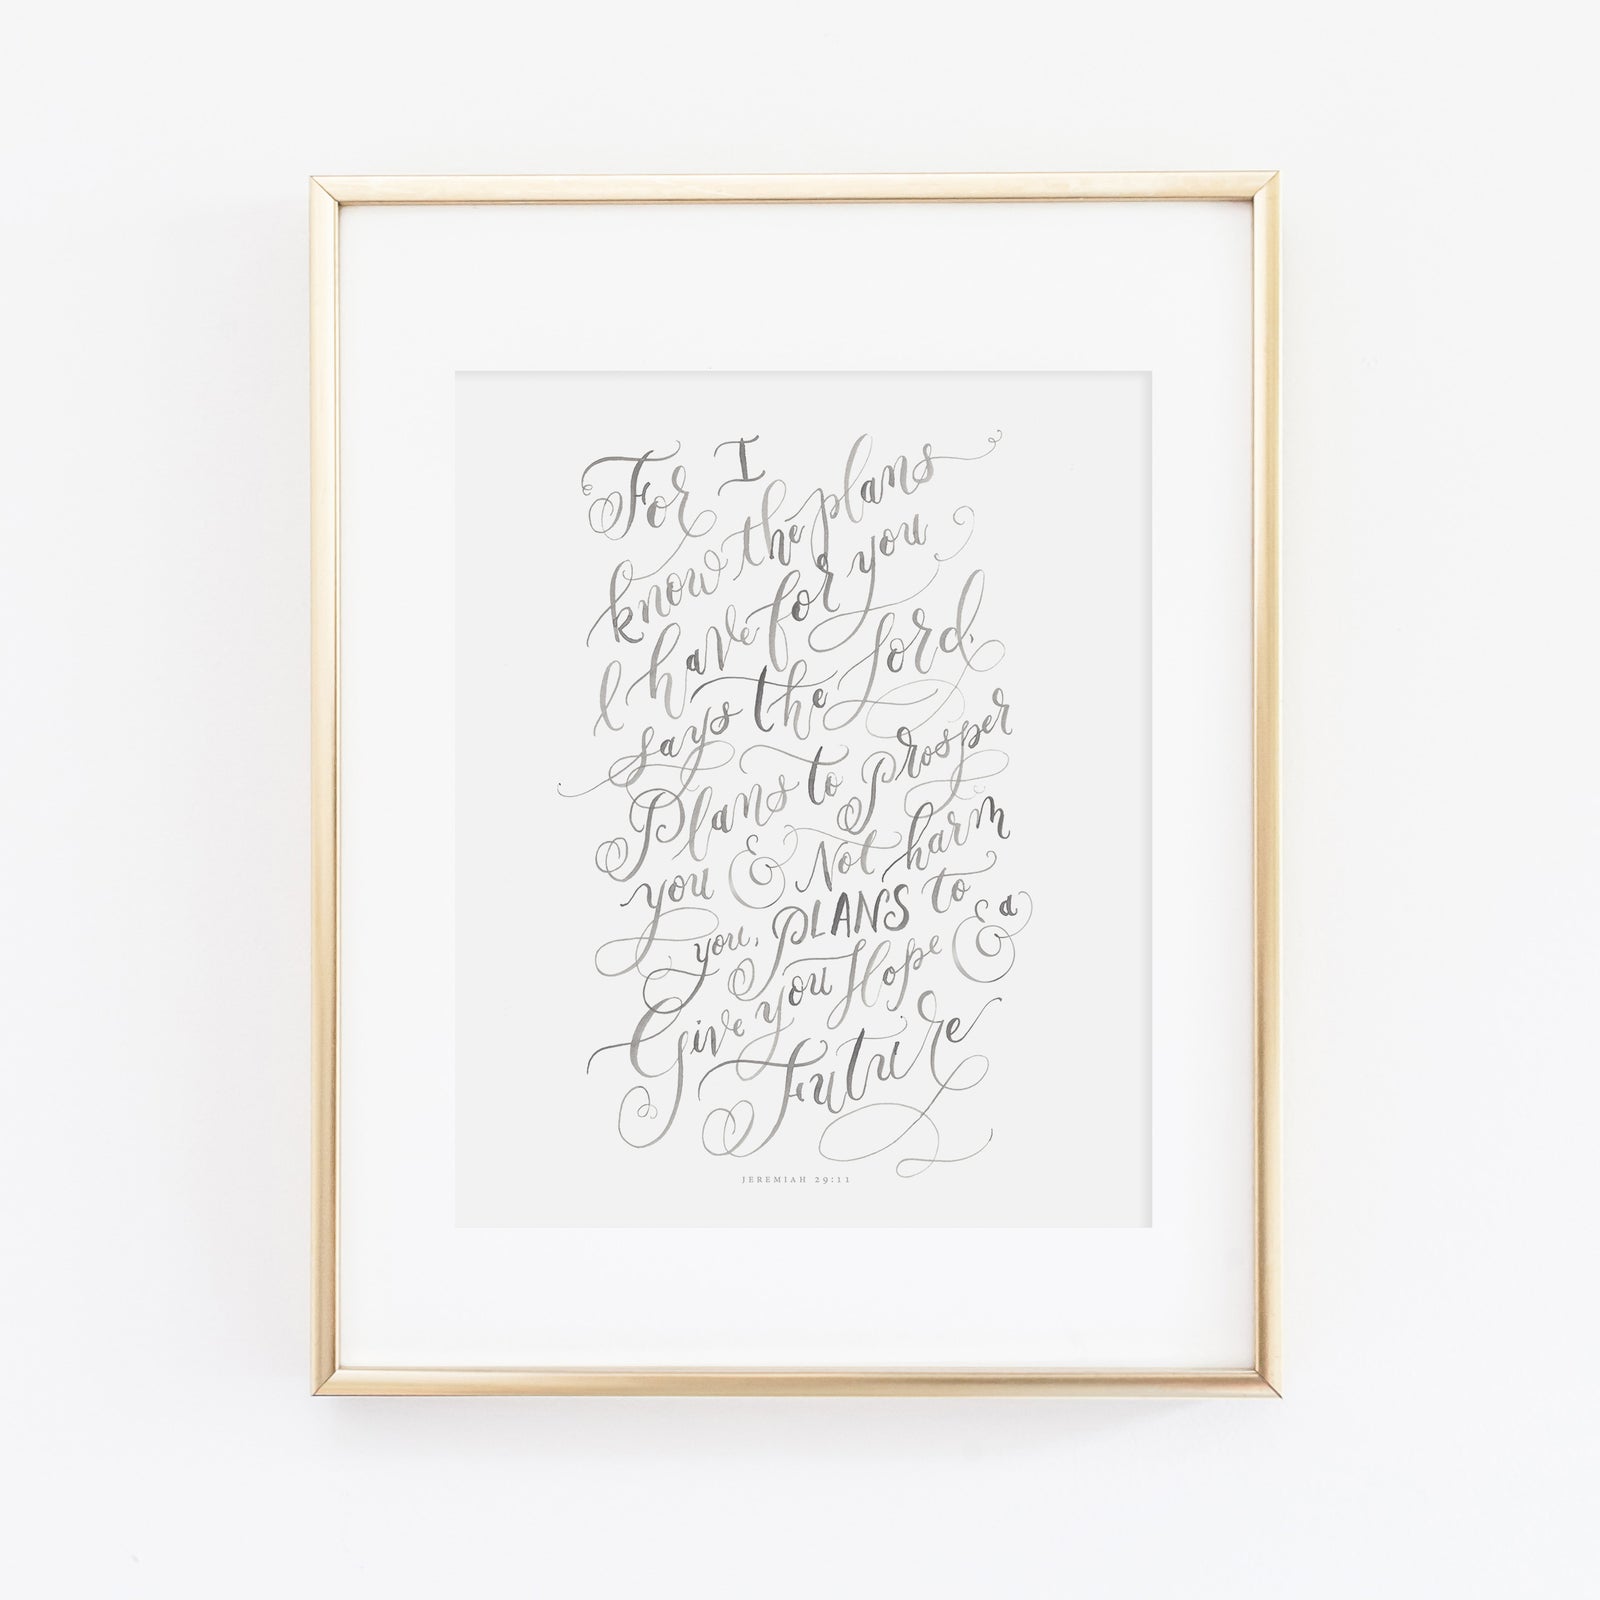 For I
know the plans
I have for you
says the Lord.
Plans to Prosper
you & Not harm
you, PLANS to
Give you Hope & a
Future
JEREMIAH 29:11